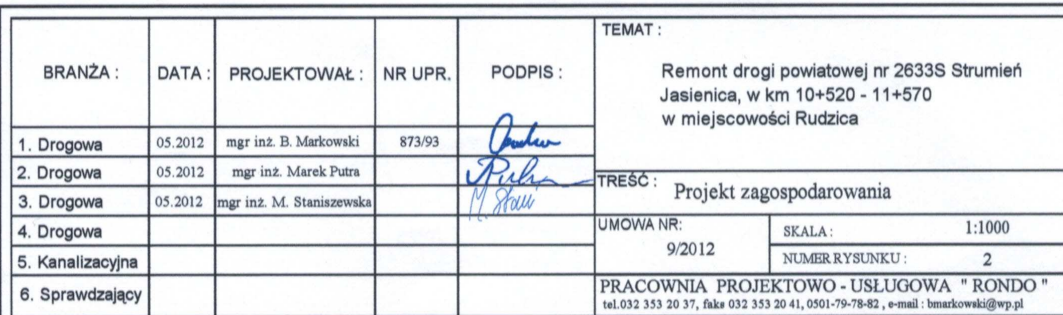 BRANŻA : DATA : PROJEKTOWAŁ : NR UPR. PODPIS :
1. Drogowa 05.2012 mgr inż. B. Markowski 873/93
2. Drogowa 05.2012 mgr inż. Marek Putra
3. Drogowa 05.2012 mgr inż. M. Staniszewska
4. Drogowa
5. Kanalizacyjna
6. Sprawdzający
TEMAT :
Remont drogi powiatowej nr 2633S Strumień
Jasienica, w km 10+520 - 11+570
w miejscowości Rudzica
TREŚĆ : Projekt zagospodarowania
UMOWA NR:
9/2012
SKALA : 1:1000
NUMER RYSUNKU : 2
PRACOWNIA PROJEKTOWO - USŁUGOWA " RONDO "
tel.032 353 20 37, faks 032 353 20 41, 0501-79-78-82 , e-mail : bmarkowski@wp.pl